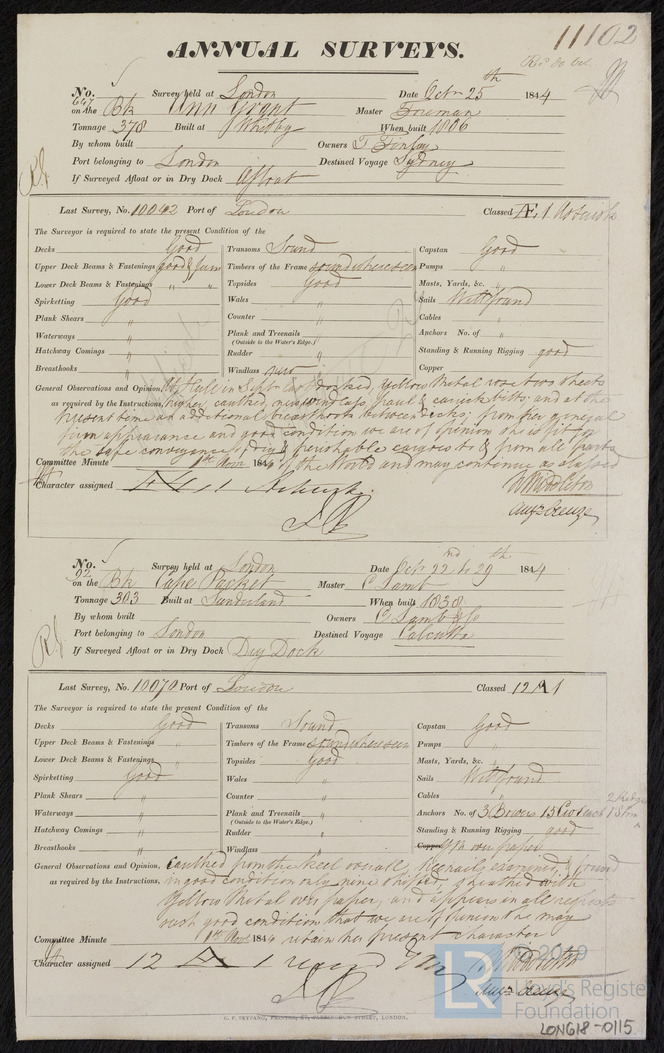 11102
ANNUAL SURVEYS.
No. 647 Survey held at London Date Octr 25th 1844
on the Bk Ann Grant Master Foreman
Tonnage 378 Built at Whitby When built 1806
By whom built Owners T Finlay
Port belonging to London Destined Voyage Sydney
If Surveyed Afloat or in Dry Dock Afloat
Last Survey, No. 10042 Port of London Classed Æ 1
The Surveyor is required to state the present Condition of the
Decks Good Transoms Sound Capstan Good
Upper Deck Beams & Fastenings good & firm Timbers of the Frame sound where seen Pumps "
Lower Deck Beams & Fastenings " " Topsides good Masts, Yards, &c. "
Spirketting Good Wales " Sails Well found
Plank Shears " Counter " Cables "
Waterways " Plank and Treenails " Anchors No. of "
(Outside to the Water's Edge.)
Hatchway Comings " Rudder " Standing & Running Rigging good
Breasthooks " Windlass new Copper
General Observations and Opinion, docked, Yellow Metal two sheets
as required by the Instructions, higher, caulked, new windlass, paul & carrick bitts; and at the
present time an additional breasthook between decks; from her general
firm appearance and good condition we are of opinion she is fit for
the safe conveyance of dry & perishable cargoes to & from all parts
Committee Minute 1st Novr 1844 of the World and may continue as classed
Character assigned Æ 1
Augn Creuze
No. 92 Survey held at London Date Octr 22nd to 29th 1844
on the Bk Cape Packet Master C Lamb
Tonnage 303 Built at Sunderland When built 1838
By whom built Owners C Lamb & Co
Port belonging to London Destined Voyage Calcutta
If Surveyed Afloat or in Dry Dock Dry Dock
Last Survey, No. 10070 Port of London Classed 12 A 1
The Surveyor is required to state the present Condition of the
Decks Good Transoms Sound Capstan Good
Upper Deck Beams & Fastenings " Timbers of the Frame sound where seen Pumps "
Lower Deck Beams & Fastenings " Topsides Good Masts, Yards, &c. "
Spirketting Good Wales " Sails Well found
Plank Shears " Counter " Cables "
Waterways " Plank and Treenails " Anchors No. of 3 Bowers
(Outside to the Water's Edge.)
Hatchway Comings " Rudder " Standing & Running Rigging good
Breasthooks " Windlass " Copper over paper
General Observations and Opinion, Caulked from the keel overall, treenails examined & found
as required by the Instructions, in good condition only nine shifted, sheathed with
Yellow Metal over paper, and appears in all respects
such good condition that we are of opinion she may
Committee Minute 1st Novr 1844 retain her present character
Character assigned 12 A 1
Augn Creuze
G. F. SEYFANG, PRINTER, LONDON.
LR
© 2019
Lloyd's Register
Foundation
LON618-0115